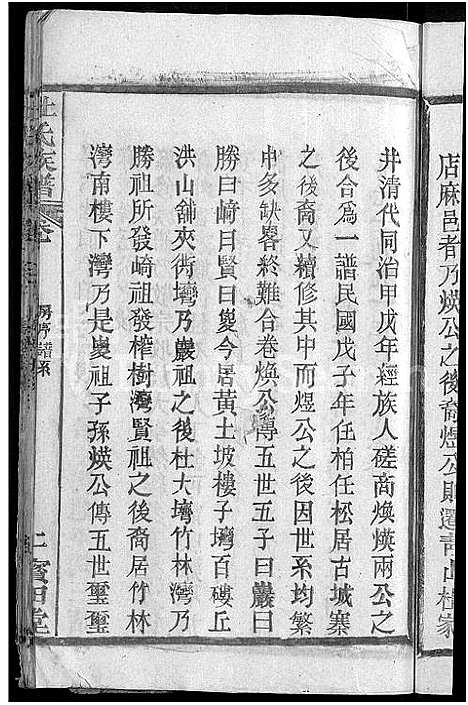 店麻邑者乃煐公之後裔煜公則遷青山杜家
井清代同治甲戊年經族人磋商煥煐兩公之
後合爲一譜民國戊子年任柏任松居古城寨
之後裔又續修其中而煜公之後因世系均繁
中多缺畧終難合卷煥公傳五世五子曰巖曰
勝曰﨑曰賢曰𡕩今居黃土坡樓子塆百磉丘
洪山舖夾衖塆乃巖祖之後杜大塆竹林灣乃
勝祖所發崎祖發榨樹灣賢祖之後裔居竹林
灣南樓下灣乃是𡕩祖子孫煐公傳五世璽璽
杜氏族譜
房序譜系
二
寶田堂